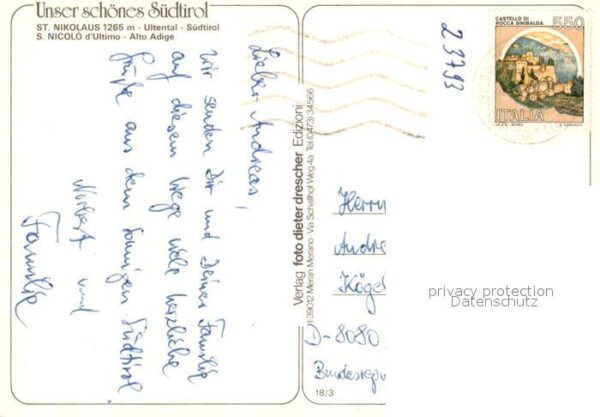 Unser schönes Südtirol
ST. NIKOLAUS 1265 m - Ultental - Südtirol
S. NICOLÒ d'Ultimo - Alto Adige
Lieber Andreas,
wir senden Dir und Deiner Familie
auf diesem Wege viele herzliche
Grüße aus dem sonnigen Südtirol
Norbert und
Familie
Verlag foto dieter drescher Edizioni
I-39012 Meran Merano · Via Schaffhof Weg 4a · Tel (0473) 34566
23793
CASTELLO DI
ROCCA SINIBALDA
550
ITALIA
I.P.Z.S. - ROMA
Herrn
Andre
Kögel
D-8080
Bundesrepu
18/3
privacy protection
Datenschutz